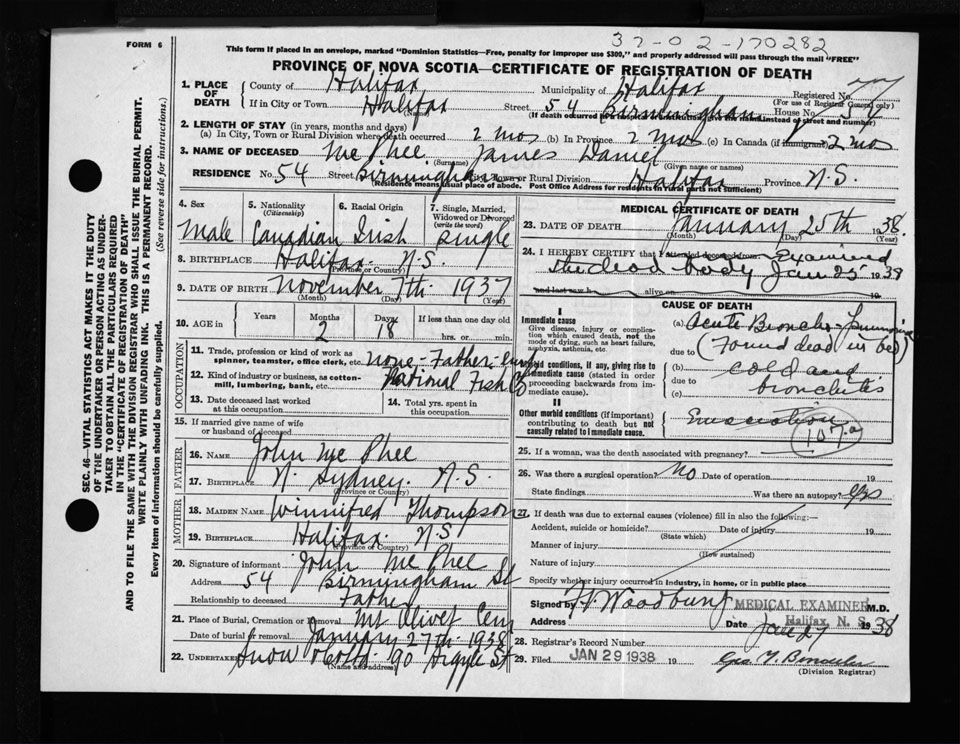 37-02-170282
FORM 6
This form if placed in an envelope, marked "Dominion Statistics—Free, penalty for improper use $300," and properly addressed will pass through the mail "FREE"
PROVINCE OF NOVA SCOTIA—CERTIFICATE OF REGISTRATION OF DEATH
SEC. 46—VITAL STATISTICS ACT MAKES IT THE DUTY
OF THE UNDERTAKER OR PERSON ACTING AS UNDER-
TAKER TO OBTAIN ALL THE PARTICULARS REQUIRED
IN THE "CERTIFICATE OF REGISTRATION OF DEATH"
AND TO FILE THE SAME WITH THE DIVISION REGISTRAR WHO SHALL ISSUE THE BURIAL PERMIT.
WRITE PLAINLY WITH UNFADING INK. THIS IS A PERMANENT RECORD.
Every item of information should be carefully supplied. (See reverse side for instructions.)
1. PLACE OF DEATH County of Halifax Municipality of Halifax Registered No. 77
(For use of Registrar General only)
If in City or Town Halifax Street 54 Birmingham House No. 54
(Name) (If death occurred instead of street and number)
2. LENGTH OF STAY (in years, months and days)
(a) In City, Town or Rural Division where death occurred 2 mos (b) In Province 2 mos (c) In Canada (if immigrant) 2 mos
3. NAME OF DECEASED Mc Phee James Daniel
(Surname) (Given name or names)
RESIDENCE No. 54 Street Birmingham City, Town or Rural Division Halifax Province N.S.
(Residence means usual place of abode. Post Office Address for residents in rural parts not sufficient)
4. Sex Male
5. Nationality (Citizenship) Canadian
6. Racial Origin Irish
7. Single, Married, Widowed or Divorced (write the word) Single
8. BIRTHPLACE Halifax N.S.
(Province or Country)
9. DATE OF BIRTH November 7th 1937
(Month) (Day) (Year)
10. AGE in Years Months 2 Days 18 If less than one day old
hrs. or min.
OCCUPATION
11. Trade, profession or kind of work as spinner, teamster, office clerk, etc. none - Father -
12. Kind of industry or business, as cotton-mill, lumbering, bank, etc. National Fish Co
13. Date deceased last worked at this occupation
14. Total yrs. spent in this occupation
15. If married give name of wife or husband of deceased
FATHER
16. NAME John Mc Phee
17. BIRTHPLACE N. Sydney. N.S.
(Province or Country)
MOTHER
18. MAIDEN NAME Winnifred Thompson
19. BIRTHPLACE Halifax N.S
(Province or Country)
20. Signature of informant John Mc Phee
Address 54 Birmingham St
Relationship to deceased Father
21. Place of Burial, Cremation or Removal Mt Olivet Cem
Date of burial or removal January 27th 1938
22. UNDERTAKER Snow & Co Ltd. 90 Argyle St
(Name and address)
MEDICAL CERTIFICATE OF DEATH
23. DATE OF DEATH January 25th 1938.
(Month) (Day) (Year)
24. I HEREBY CERTIFY that I attended deceased from Examined
the dead body Jan 25 1938
and last saw h alive on 19
CAUSE OF DEATH
I
Immediate cause
Give disease, injury or complication which caused death, not the mode of dying, such as heart failure, asphyxia, asthenia, etc.
(a) Acute Broncho-Pneumonia
(Found dead in bed)
due to
Morbid conditions, if any, giving rise to immediate cause (stated in order proceeding backwards from immediate cause).
(b) cold and
due to
(c) bronchitis
II
Other morbid conditions (if important) contributing to death but not causally related to immediate cause.
107a
25. If a woman, was the death associated with pregnancy?
26. Was there a surgical operation? No Date of operation 19
State findings Was there an autopsy? Yes
27. If death was due to external causes (violence) fill in also the following:—
Accident, suicide or homicide? Date of injury 19
(State which)
Manner of injury
(How sustained)
Nature of injury
Specify whether injury occurred in industry, in home, or in public place
Signed by H. Woodbury MEDICAL EXAMINER M.D.
Halifax, N. S.
Address Date Jan 27 1938
28. Registrar's Record Number
29. Filed JAN 29 1938 19
(Division Registrar)